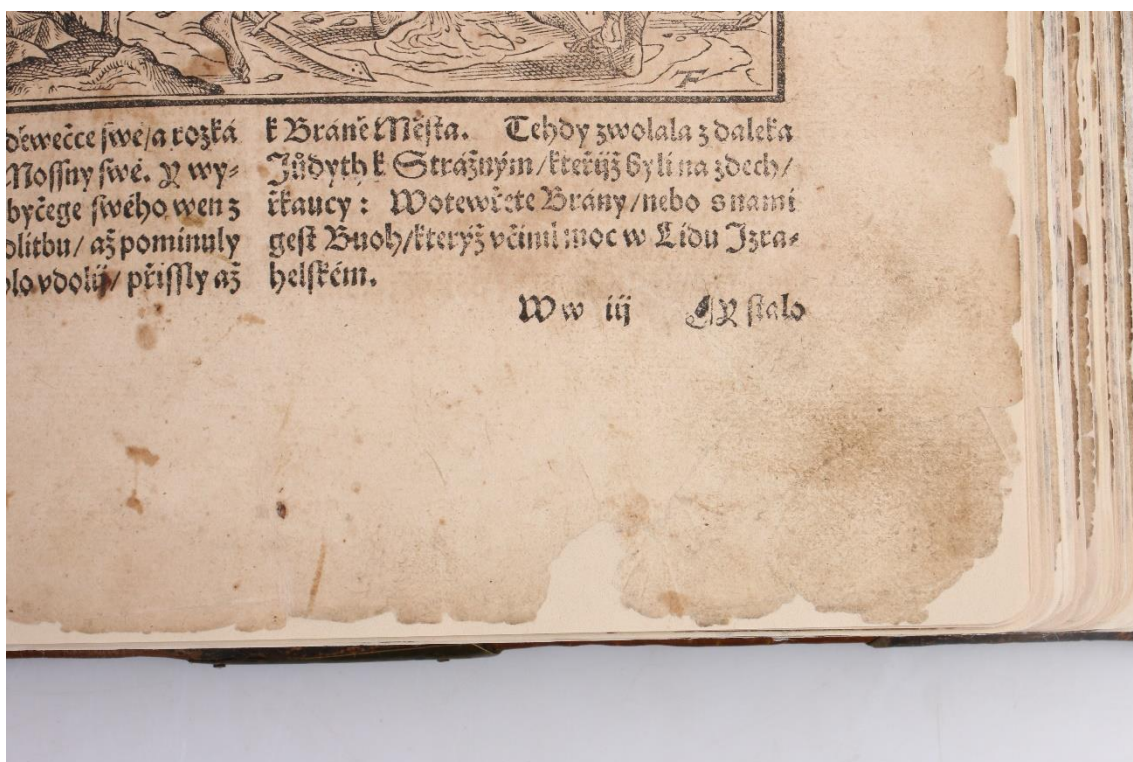 děwečce swé/a rozká
Mossny swé. Y wy⸗
byčege swého wen z
olitbu/ až pominuly
olo vdolij/ přissly až
k Bráně Města. Tehdy zwolala z daleka
Jůdyth k Strážným/kteřijž byli na zdech/
řkaucy: Wotewřete Brány/nebo s nami
gest Buoh/kterýž včinil moc w Lidu Izra⸗
helském.
Ww iij Y stalo